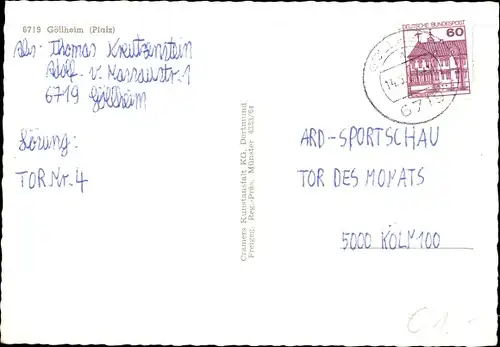 6719 Göllheim (Pfalz)
Abs. Thomas Kreutzenstein
Adolf. v. Nassaustr. 1
6719 Göllheim
Lösung:
TOR Nr. 4
Cramers Kunstanstalt KG, Dortmund
Freigeg. Reg.-Präs. Münster 4383/64
60
DEUTSCHE BUNDESPOST
6719
ARD-SPORTSCHAU
TOR DES MONATS
5000 KÖLN 100